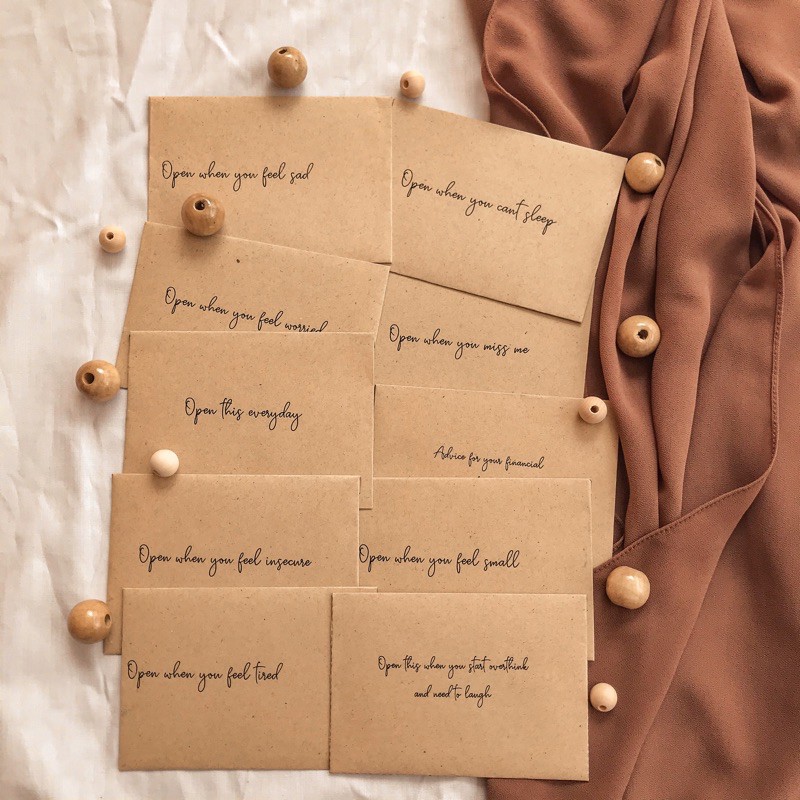 Open when you feel sad
Open when you can't sleep
Open when you feel worried
Open when you miss me
Open this everyday
Advice for your financial
Open when you feel insecure
Open when you feel small
Open when you feel tired
Open this when you start overthink
and need to laugh